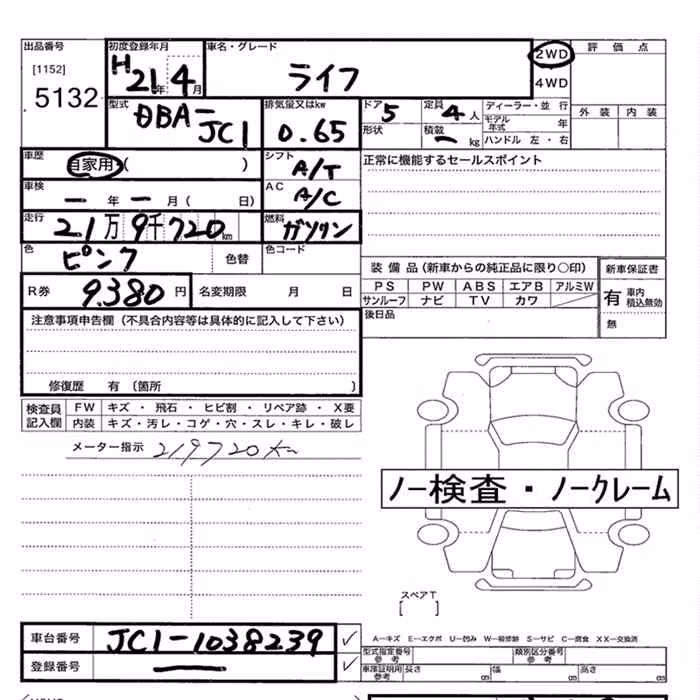 出品番号 初度登録年月 車名・グレード 2WD 評価点
[1152] H21年4月 ライフ 4WD
5132 型式 排気量又はkw ドア 5 定員 4人 ディーラー・並行 外装 内装
DBA-JC1 0.65 形状 積載 ー kg モデル年式 年
ハンドル 左・右
車歴 自家用・( ) シフト A/T 正常に機能するセールスポイント
車検 ー年ー月( 日) AC A/C
走行 21万9千720km 燃料 ガソリン
色 ピンク 色替 色コード
装備品(新車からの純正品に限り○印) 新車保証書
R券 9380円 名変期限 月 日 PS PW ABS エアB アルミW 有 車内積込無効
サンルーフ ナビ TV カワ
注意事項申告欄(不具合内容等は具体的に記入して下さい) 後日品 無
修復歴 有 〔箇所 〕
検査員記入欄 FW キズ・飛石・ヒビ割・リペア跡・X要
内装 キズ・汚レ・コゲ・穴・スレ・キレ・破レ
メーター指示 219720km
ノー検査・ノークレーム
スペアT
[ ]
車台番号 JC1-1038239 ✓ A-キズ E-エクボ U-凹み W-補修跡 S-サビ C-腐食 XX-交換済
型式指定番号 参考 類別区分番号 参考
登録番号 ー ✓ 車庫証明用 参考 長さ cm 幅 cm 高さ cm